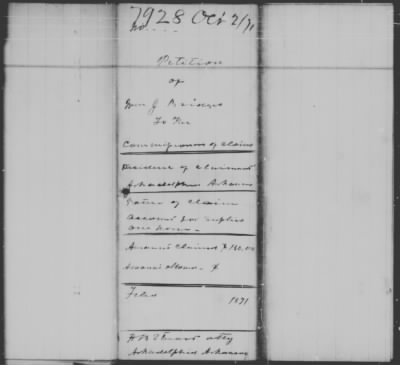 7928 Oct 2/71
No.
Petition
of
Wm J. Bridges
To the
Commissioners of Claims
Residence of Claimant
Arkadelphia Arkansas
Nature of Claim
Account for supplies
one horse
Amount Claimed $ 150.00
Amount allowed $
Filed 1871
atty
Arkadelphia Arkansas